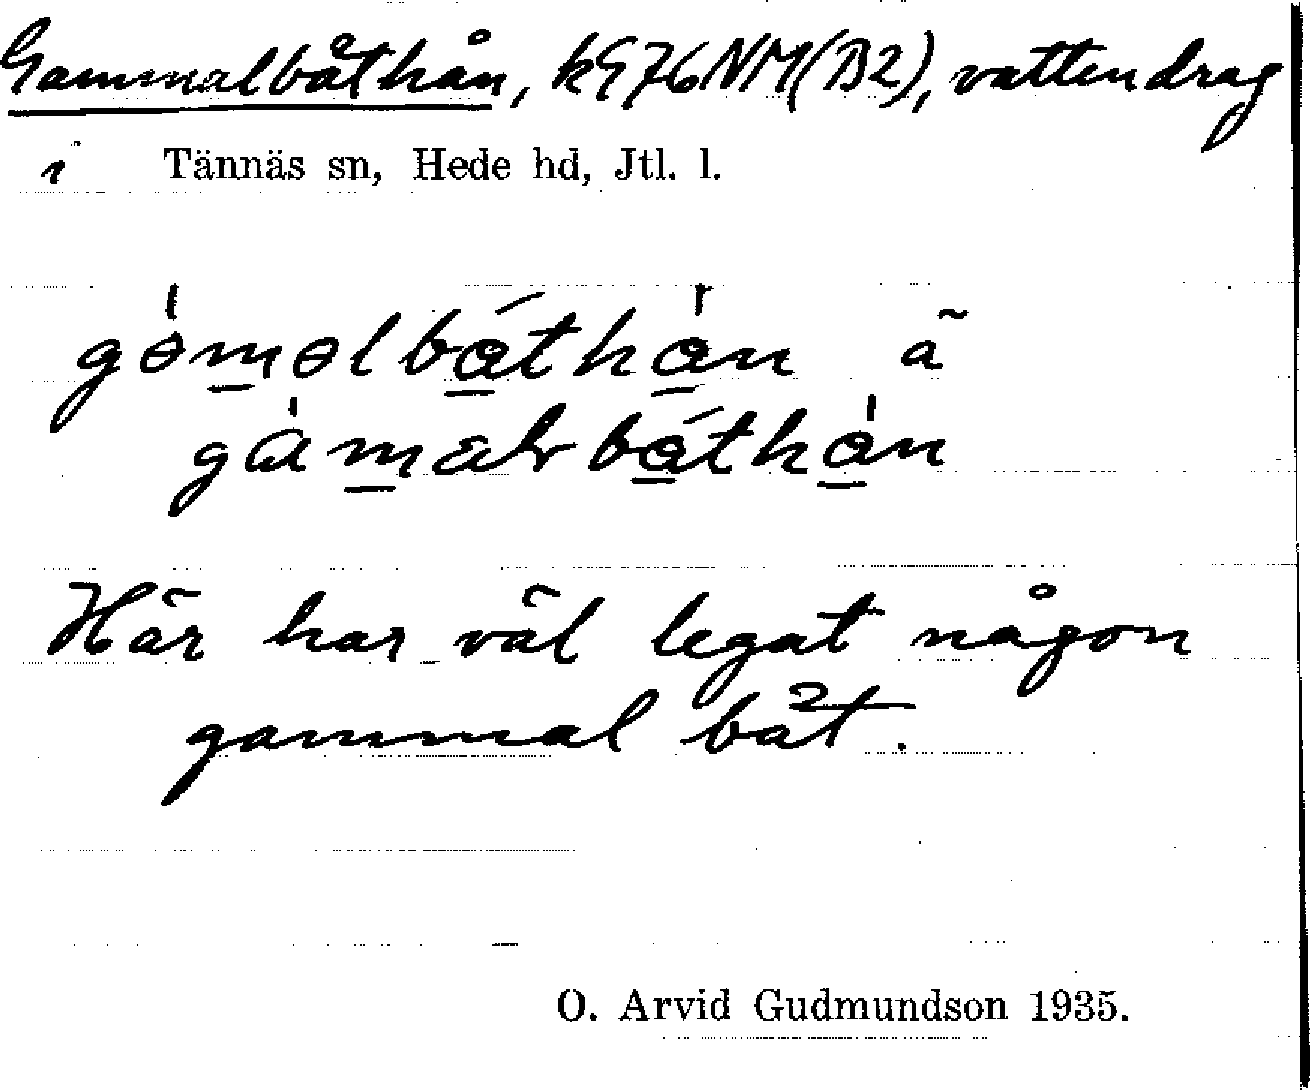 Gammalbåthån, kG76NM(B2), vattendrag
i Tännäs sn, Hede hd, Jtl. l.
gǝ̀mǝlbáthàn ã
gàmalrbáthàn
Här har väl legat någon
gammal båt.
O. Arvid Gudmundson 1935.